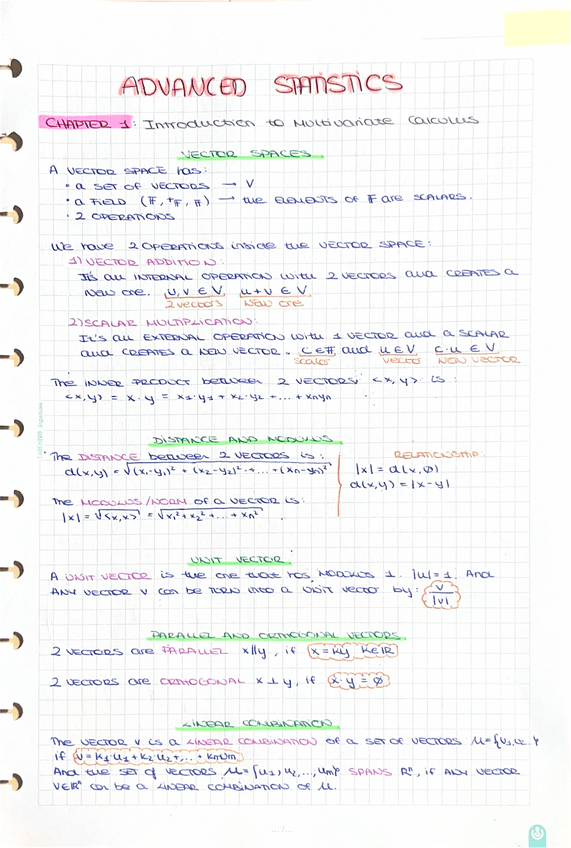 ADVANCED STATISTICS
CHAPTER 1: Introduction to Multivariate Calculus
VECTOR SPACES
A VECTOR SPACE has:
· a SET OF VECTORS → V
· a FIELD (F, +F, ·F) → the ELEMENTS OF F are SCALARS.
· 2 OPERATIONS
We have 2 OPERATIONS inside the VECTOR SPACE:
1) VECTOR ADDITION:
It's an INTERNAL OPERATION with 2 VECTORS and CREATES a
NEW one. u, v ∈ V u + v ∈ V
2 vectors NEW one
2) SCALAR MULTIPLICATION:
It's an EXTERNAL OPERATION with 1 VECTOR and a SCALAR
and CREATES a NEW VECTOR. c ∈ F and u ∈ V c·u ∈ V
scalar vector NEW VECTOR
The INNER PRODUCT between 2 VECTORS <x, y> is:
<x, y> = x · y = x1·y1 + x2·y2 + ... + xnyn
DISTANCE AND MODULUS
The DISTANCE between 2 VECTORS is: RELATIONSHIP:
d(x,y) = √(x1-y1)² + (x2-y2)² + ... + (xn-yn)² |x| = d(x,∅)
d(x,y) = |x-y|
The MODULUS/NORM of a VECTOR is:
|x| = √<x,x> = √x1² + x2² + ... + xn²
UNIT VECTOR
A UNIT VECTOR is the one that has MODULUS 1. |u| = 1. And
ANY VECTOR V can be TURN INTO a UNIT vector by: v/|v|
PARALLEL AND ORTHOGONAL VECTORS
2 VECTORS are PARALLEL x∥y, if x = ky k∈R
2 VECTORS are ORTHOGONAL x ⊥ y, if x·y = ∅
LINEAR COMBINATION
The VECTOR V is a LINEAR COMBINATION of a set of VECTORS
if v = k1·u1 + k2·u2 + ... + kmum
And the set of VECTORS μ = {u1, u2, ..., um} SPANS Rⁿ, if ANY VECTOR
V∈Rⁿ can be a LINEAR COMBINATION of μ.